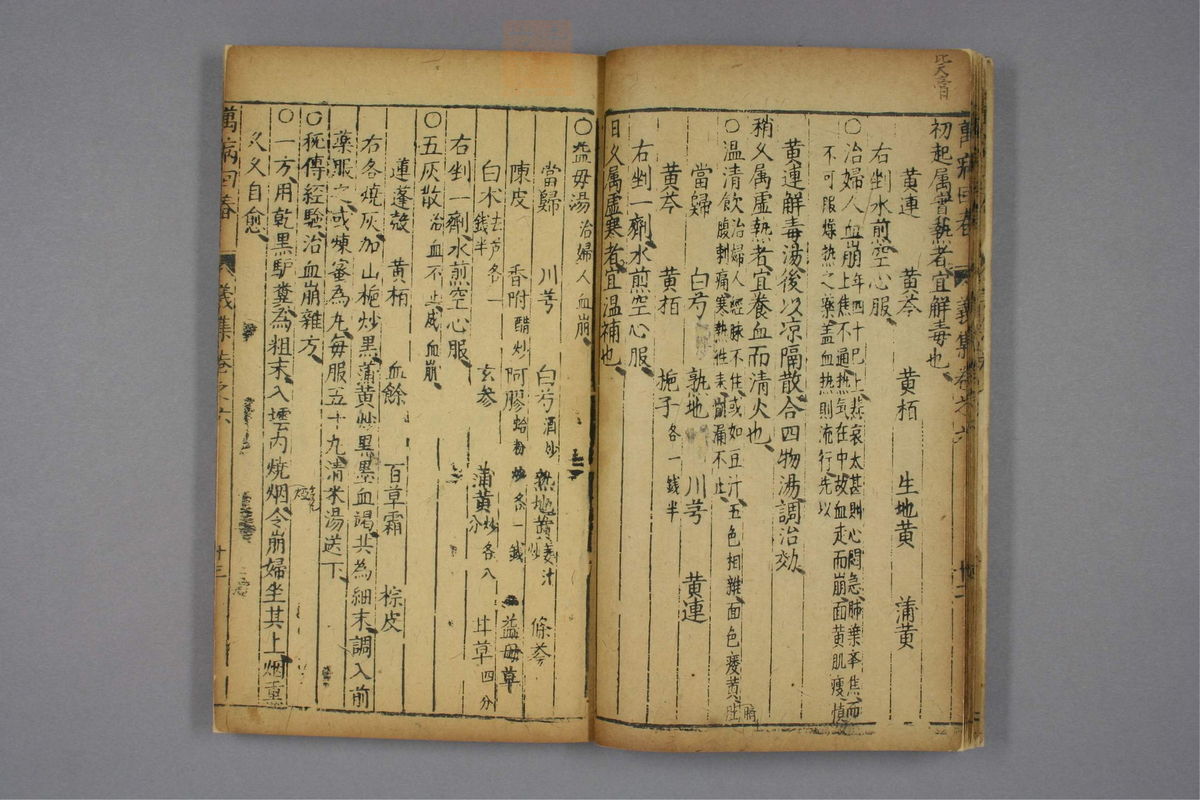 初起属實熱者宜解毒也
黄連 黄芩 黄栢 生地黄 蒲黄
右剉水煎空心服
○治婦人血崩年四十已上悲哀太甚則心悶急肺葉夲焦而
上焦不通熱氣在中故血走而崩面黄肌瘦慎
不可服燥熱之藥蓋血熱則流行先以
黄連解毒湯後以凉隔散合四物湯調治効
稍久属虚熱者宜養血而清火也
○温清飲治婦人經脉不住或如豆汁五色相雜面色痿黄肚
腹刺痛寒熱徃来崩漏不止
當歸 白芍 熟地 川芎 黄連
黄芩 黄栢 梔子各一錢半
右剉一劑水煎空心服
日久属虚寒者宜温補也
○益母湯治婦人血崩
當歸 川芎 白芍酒炒 熟地黄姜汁炒 條芩
陳皮 香附醋炒 阿膠蛤粉炒各一錢 益母草
白术去芦各一錢半 玄参 蒲黄炒各八分 甘草四分
右剉一劑水煎空心服
○五灰散治血不止咸血崩
蓮蓬殻 黄栢 血餘 百草霜 棕皮
右各燒灰加山梔炒黒蒲黄炒黒墨血竭共為細末調入前
藥服之或煉蜜為丸毎服五十丸清米湯送下
○秘傳經驗治血崩雜方
○一方用乾黒驴糞為粗末入壜内燒烟令崩婦坐其上烟熏
久久自愈
萬病回春 八 義集 卷之六 廿三